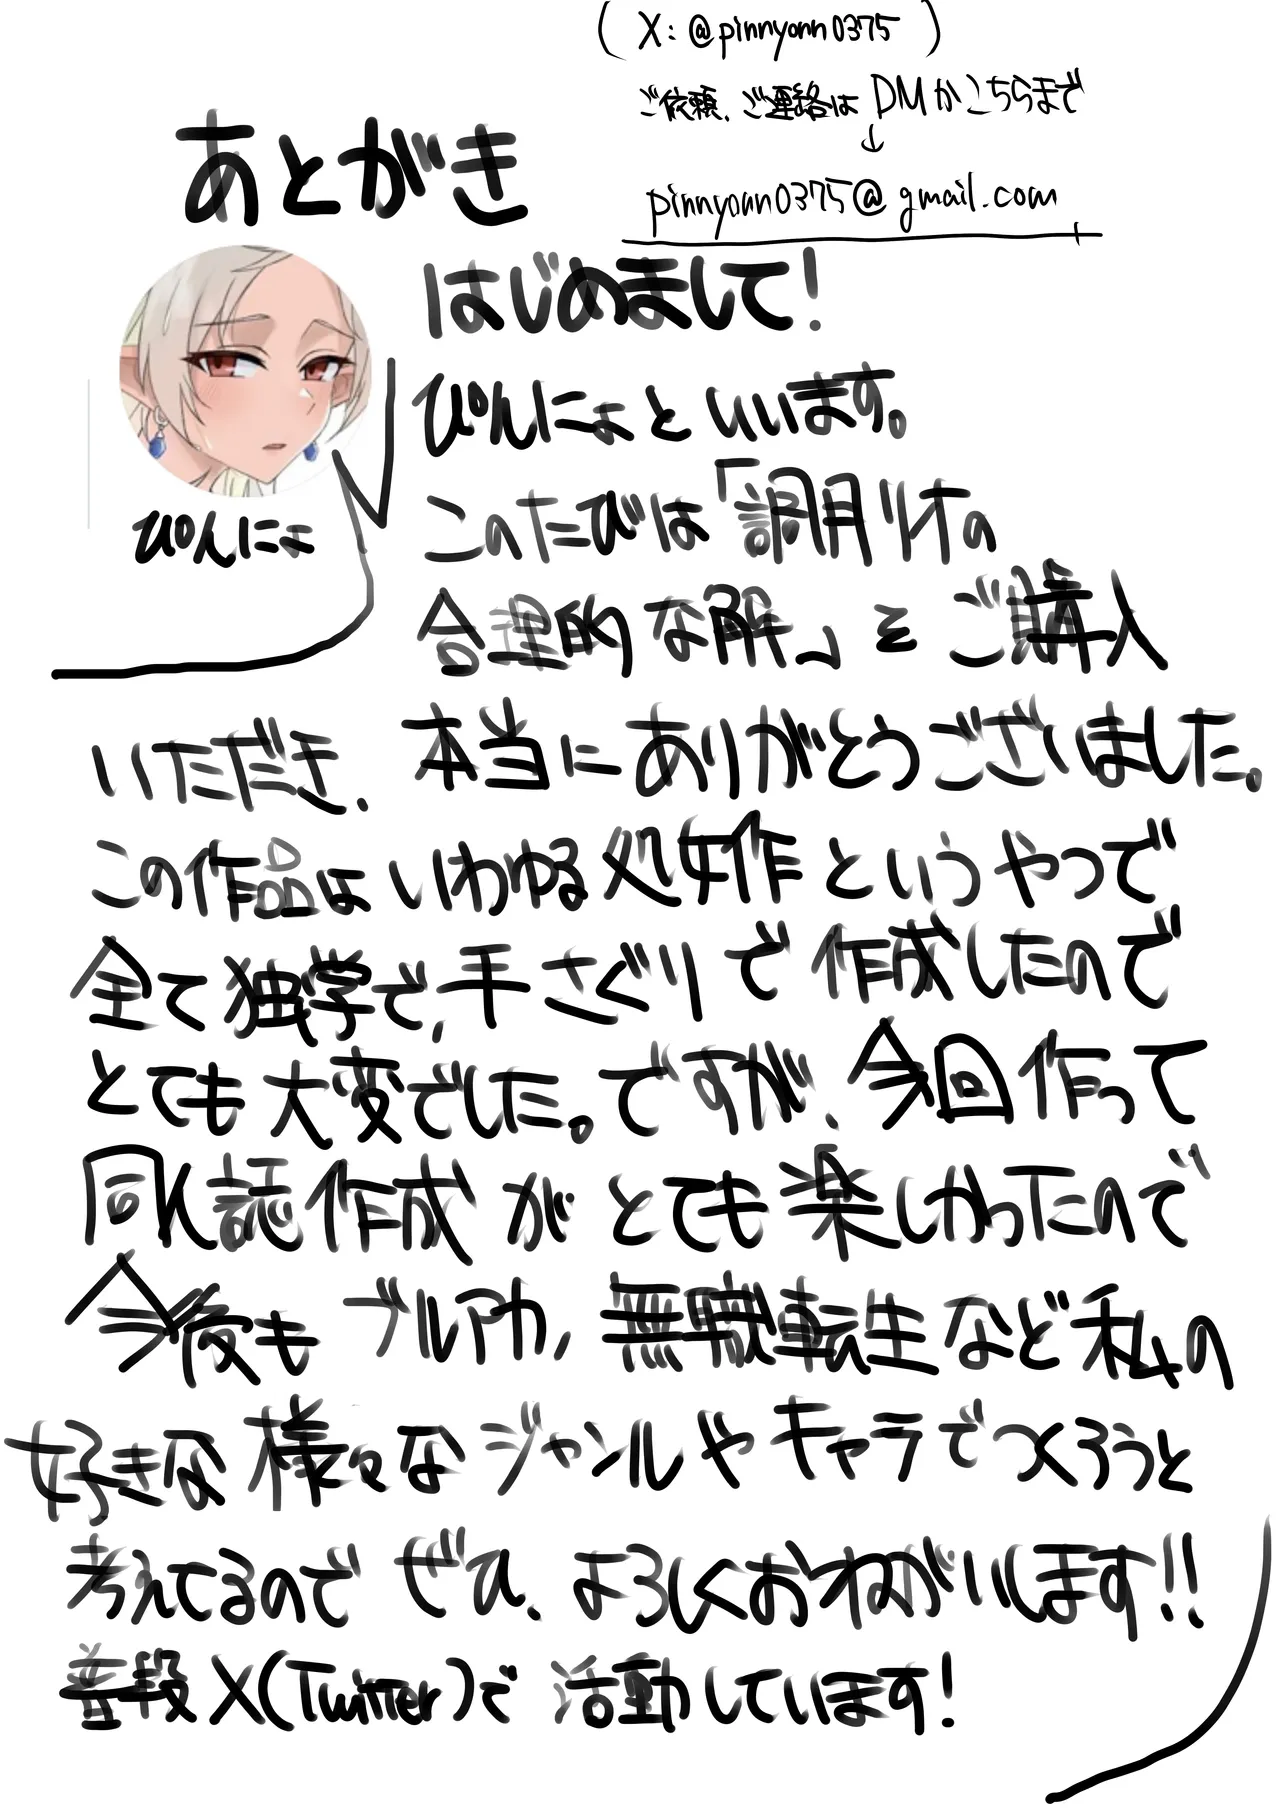 (X: @pinnyonn0375)
ご依頼、ご連絡は DMかこちらまで
↓
pinnyonn0375@gmail.com
あとがき
ぴんにょ
はじめまして!
ぴんにょといいます。
このたびは「調月リオの
合理的な解」をご購入
いただき、本当にありがとうございました。
この作品はいわゆる処女作というやつで
全て独学で、手さぐりで作成したので
とても大変でした。ですが、今回作って
同人誌作成がとても楽しかったので
今後もブルアカ、無職転生など私の
好きな様々なジャンルやキャラでつくろうと
考えてるのでぜひ、よろしくおねがいします!!
普段X(Twitter)で活動しています!